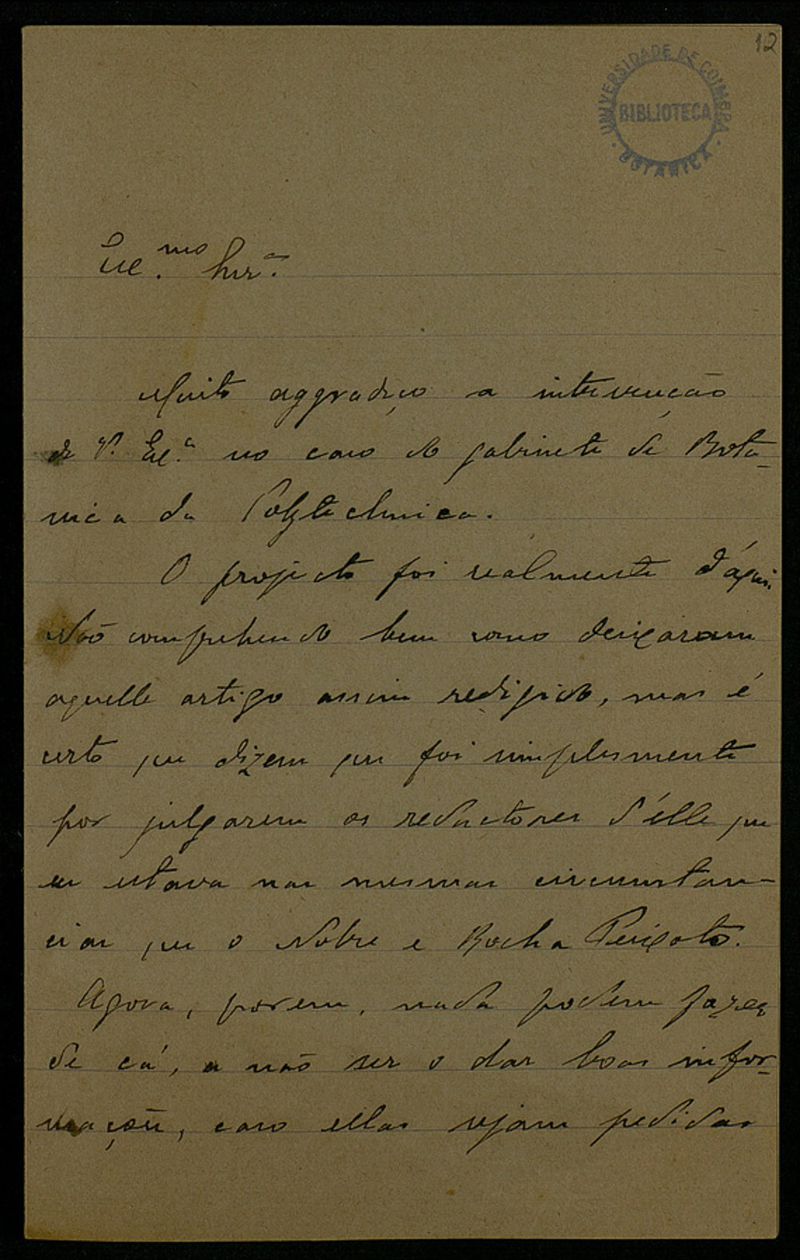 12
UNIVERSIDADE DE COIMBRA
BIBLIOTECA
BOTANICA
Exc.mo Snr.
Muito aggradeço a intervenção
de V. Ex.a no caso do gabinete de Bota-
nica da Polytechnica.
O projecto foi realmente d'áqui.
Não comprehendo bem como deixaram
aquelle artigo assim redigido, mas é
certo que dizem que foi simplesmente
por julgarem os redactores d'élle que
eu estava nas mesmas circumstan-
cias que o Nobre e Rocha Peixoto.
Agora, porem, nada podem fazer
de cá, a não ser o dar boas infor-
mações, caso ellas sejam pedidas